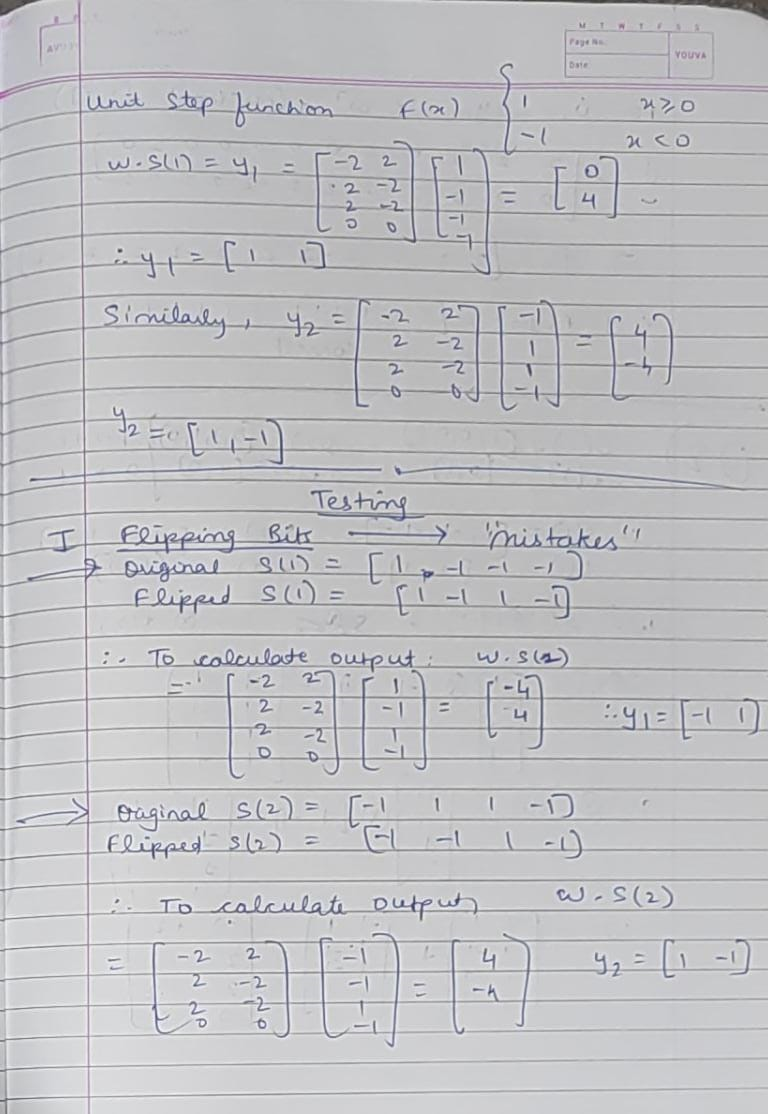 M T W T F S S
Page No.
YOUVA
Date
Unit step function f(x) { 1 ; x ≥ 0
-1 x < 0
W.S(1) = y₁ = [-2 2; 2 -2; 2 -2; 0 0] [1; -1; -1; -1] = [0; 4]
∴ y₁ = [1 1]
Similarly, y₂ = [-2 2; 2 -2; 2 -2; 0 0] [-1; 1; 1; -1] = [4; -4]
y₂ = [1, -1]
Testing
I Flipping Bits → "mistakes"
→ Original S(1) = [1, -1 -1 -1]
Flipped S(1) = [1 -1 1 -1]
∴ To calculate output: W.S(2)
= [-2 2; 2 -2; 2 -2; 0 0] [1; -1; 1; -1] = [-4; 4] ∴ y₁ = [-1 1]
→ Original S(2) = [-1 1 1 -1]
Flipped S(2) = [-1 -1 1 -1]
∴ To calculate output, W.S(2)
= [-2 2; 2 -2; 2 -2; 0 0] [-1; -1; 1; -1] = [4; -4] y₂ = [1 -1]